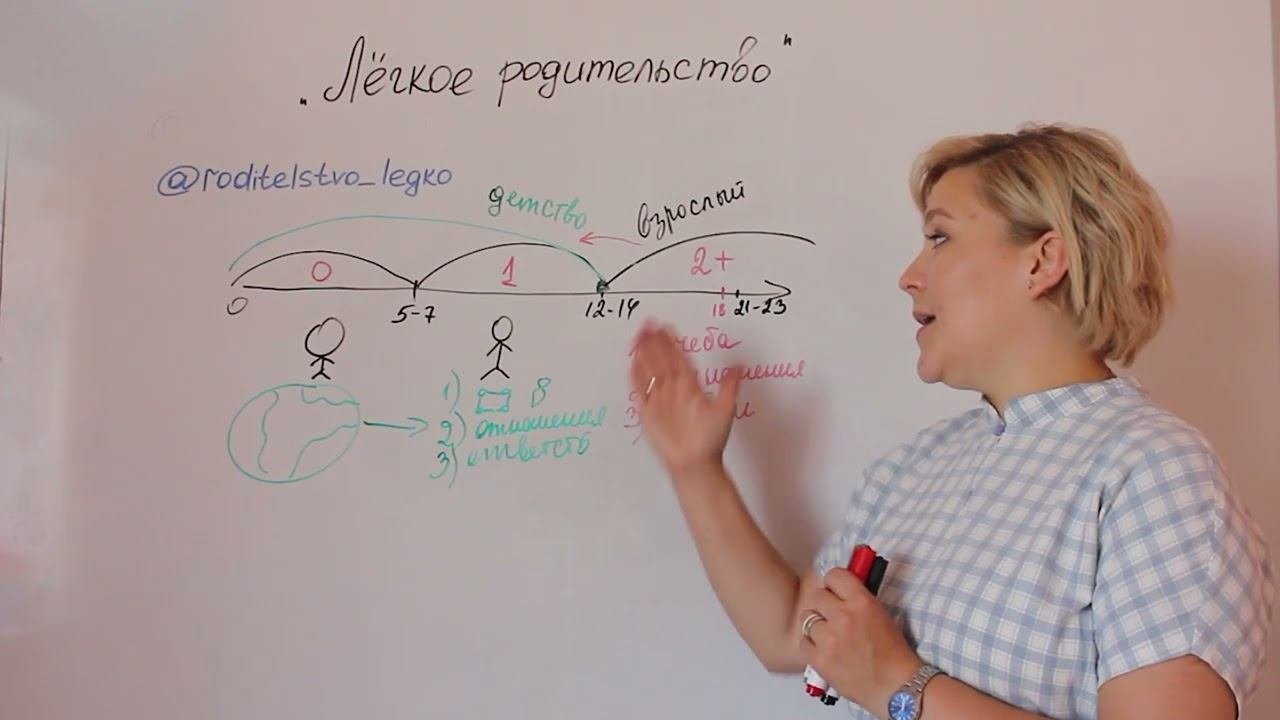 „Лёгкое родительство"
@roditelstvo_legko
детство взрослый
0 1 2+
0 5-7 12-14 18 21-23
1)
2) отношения
3) ответств